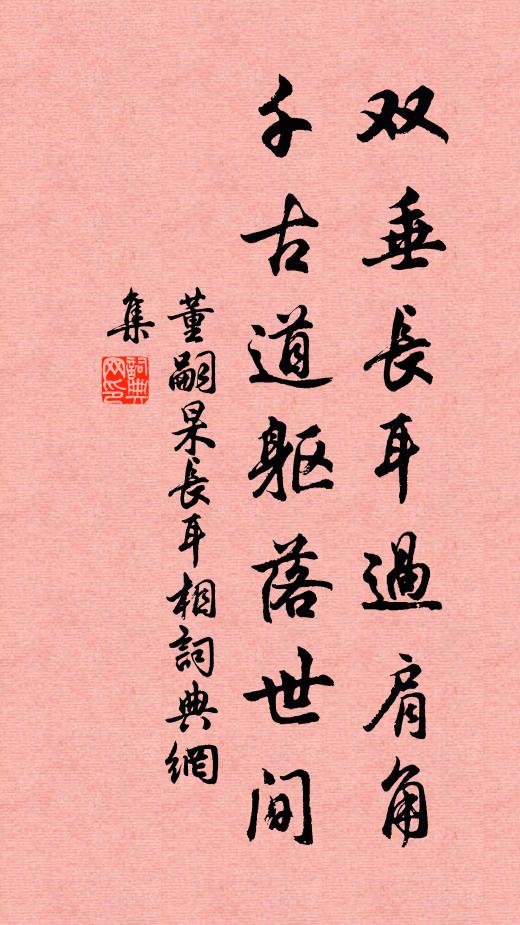 双垂長耳過肩角
千古道躯落世間
董嗣杲長耳相詞典網
集
詞典
网印